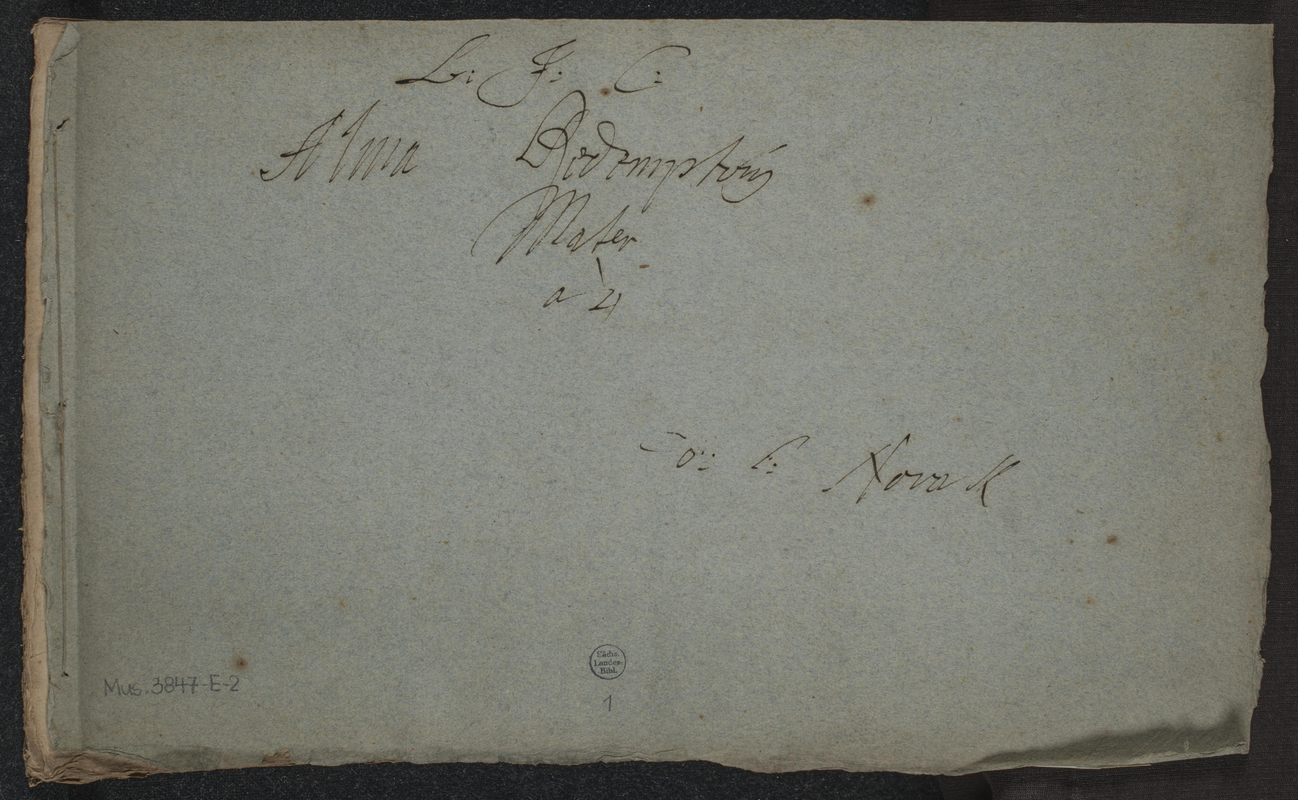 L: J: C:
Alma Redemptoris
Mater
à 4
Novak
Mus. 3847-E-2
Sächs.
Landes-
Bibl.
1